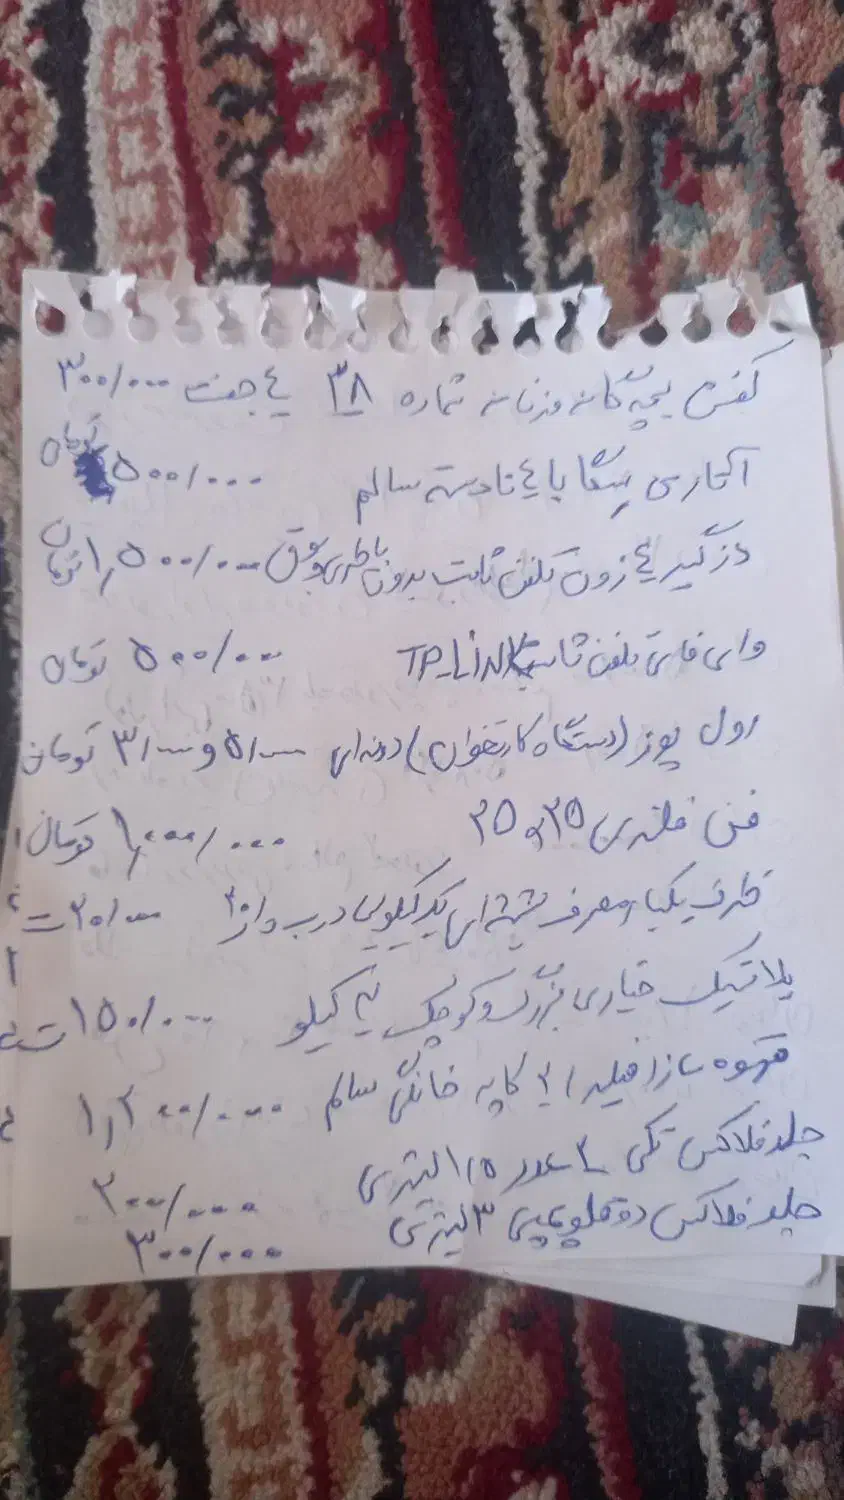 کفش بچگانه و زنانه شماره ۳۸ ۴ جفت ۳۰۰/۰۰۰
آتاری سگا با ۴ تا دسته سالم ۵۰۰/۰۰۰ تومان
دزگیر ۴ زون تلفن ثابت بدون باطری و بوق ۱,۵۰۰/۰۰۰ تومان
وای فای تلفن ثابت TP-Link ۵۰۰/۰۰۰ تومان
رول پوز (دستگاه کارتخوان) دونه‌ای ۵/۰۰۰ و ۳/۰۰۰ تومان
فن فلزی ۲۵ و ۳۵ ۱,۰۰۰/۰۰۰ تومان
ظرف یکبار مصرف شیشه‌ای یک کیلویی درب دار ۲۰/۰۰۰ ت
پلاتیک خیاری بزرگ و کوچک کیلو ۱۵۰/۰۰۰ ت
قهوه ساز کاپه خانگی سالم ۱,۲۰۰/۰۰۰
جلد فلاکس تکی عدد ۱/۵ لیتری
۲۰۰/۰۰۰
جلد فلاکس دوقلو پمپی ۳ لیتری
۳۰۰/۰۰۰